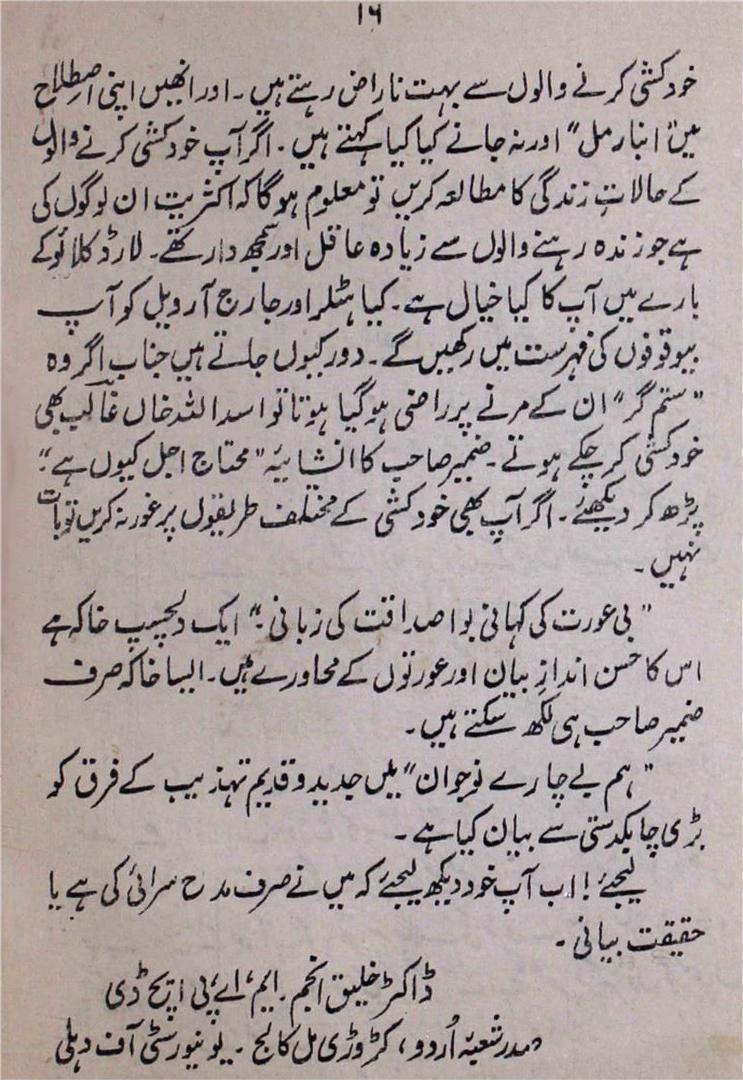 ۱۶
خودکشی کرنے والوں سے بہت ناراض رہتے ہیں ۔ اور انھیں اپنی اصطلاح
میں "ابنارمل" اور نہ جانے کیا کیا کہتے ہیں ۔ اگر آپ خودکشی کرنے والوں
کے حالاتِ زندگی کا مطالعہ کریں تو معلوم ہوگا کہ اکثریت ان لوگوں کی
ہے جو زندہ رہنے والوں سے زیادہ عاقل اور سمجھ دار تھے ۔ لارڈ کلائو کے
بارے میں آپ کا کیا خیال ہے ۔ کیا ہٹلر اور جارج آرویل کو آپ
بیوقوفوں کی فہرست میں رکھیں گے ۔ دور کیوں جاتے ہیں جناب اگر وہ
"ستم گر" ان کے مرنے پر راضی ہوگیا ہوتا تو اسد اللہ خاں غالب بھی
خودکشی کرچکے ہوتے ۔ ضمیر صاحب کا انشائیہ "محتاج اجل کیوں ہے"؛
پڑھ کر دیکھئے ۔ اگر آپ بھی خودکشی کے مختلف طریقوں پر غور نہ کریں تو بات
نہیں ۔
"بی عورت کی کہانی بوا صداقت کی زبانی ۔" ایک دلچسپ خاکہ ہے
اس کا حسن اندازِ بیان اور عورتوں کے محاورے ہیں ۔ ایسا خاکہ صرف
ضمیر صاحب ہی لکھ سکتے ہیں ۔
"ہم بے چارے نوجوان" میں جدید و قدیم تہذیب کے فرق کو
بڑی چابکدستی سے بیان کیا ہے ۔
لیجئے ! اب آپ خود دیکھ لیجئے کہ میں نے صرف مدح سرائی کی ہے یا
حقیقت بیانی ۔
ڈاکٹر خلیق انجم ۔ ایم، اے، پی ایچ ڈی
صدر شعبۂ اُردو، کروڑی مل کالج ۔ یونیورسٹی آف دہلی